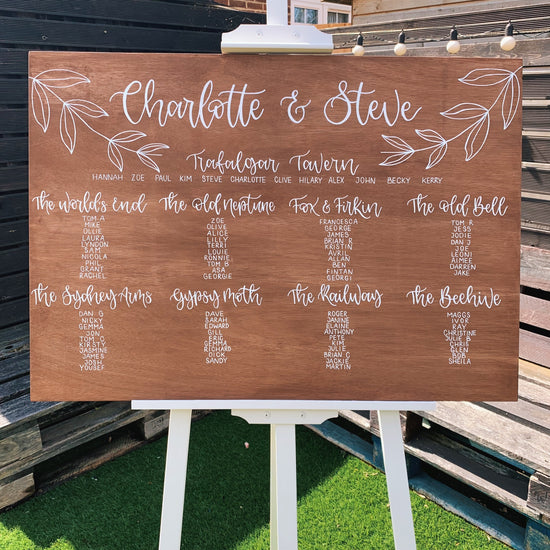 Charlotte & Steve
Trafalgar Tavern
HANNAH ZOE PAUL KIM STEVE CHARLOTTE CLIVE HILARY ALEX JOHN BECKY KERRY
The World's End
TOM A
MIKE
OLLIE
LAURA
LYNDON
SAM
NICOLA
PHIL
GRANT
RACHEL
The Old Neptune
ZOE
OLIVE
ALICE
LILLY
TERRI
LOUIE
RONNIE
TOM B
ASA
GEORGIE
Fox & Firkin
FRANCESCA
GEORGE
JAMES
BRIAN R
KRISTIN
AVRIL
ALLAN
BEN
FINTAN
GEORGE
The Old Bell
TOM R
JESS
JODIE
DAN J
JOE
LEONI
AIMEE
DARREN
JAKE
The Sydney Arms
DAN G
NICKY
GEMMA
JON
TOM C
KIRSTY
JASMINE
JAMES
JOSH
YOUSEF
Gypsy Moth
DAVE
SARAH
EDWARD
GILL
ERIC
GEMMA
RICHARD
DICK
SANDY
The Railway
ROGER
JANINE
ELAINE
ANTHONY
PETE
KIM
JULIE
BRIAN C
JACKIE
MARTIN
The Beehive
MAGGS
IVOR
RAY
CHRISTINE
JULIE B
CHRIS
GLEN
BOB
SHEILA